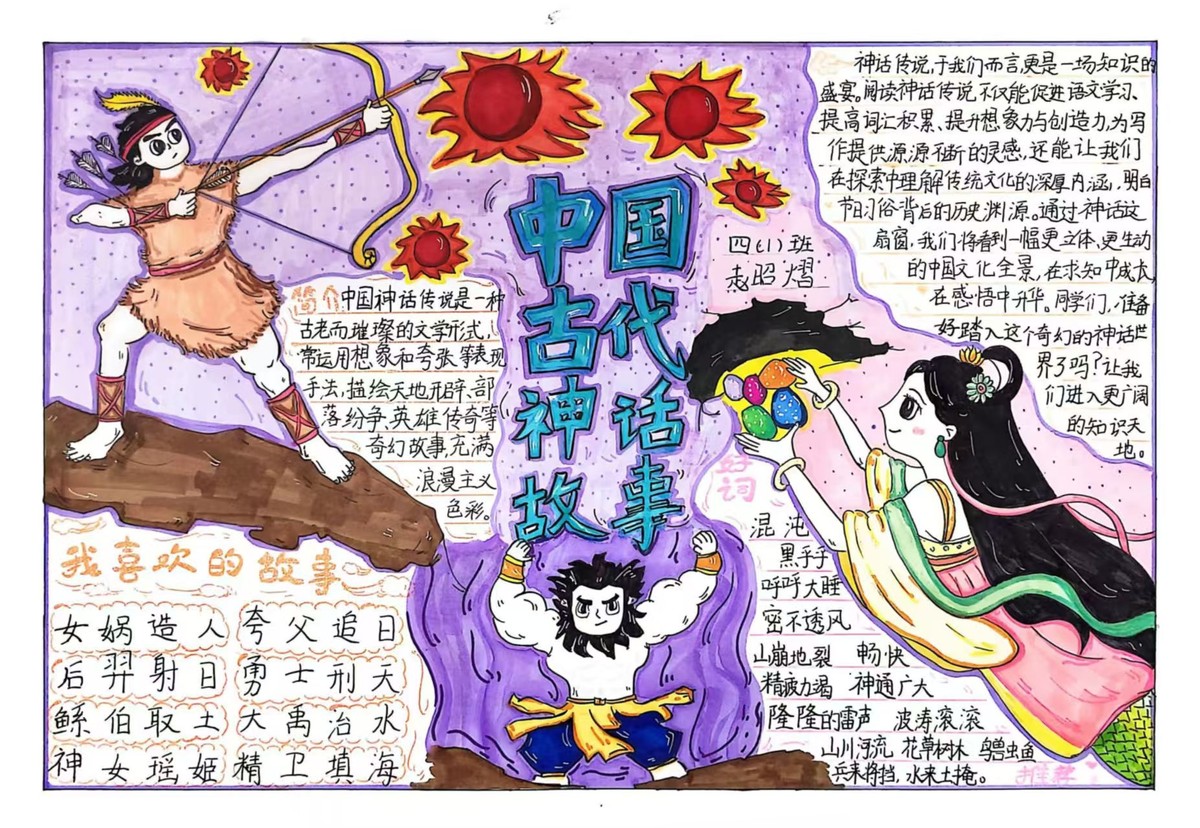 中国
古代
神话
故事
四(1)班
赵昭熠
简介
中国神话传说是一种
古老而璀璨的文学形式,
常运用想象和夸张等表现
手法,描绘天地开辟、部
落纷争、英雄传奇等
奇幻故事,充满
浪漫主义
色彩。
神话传说,于我们而言,更是一场知识的
盛宴。阅读神话传说不仅能促进语文学习、
提高词汇积累、提升想象力与创造力,为写
作提供源源不断的灵感,还能让我们
在探索中理解传统文化的深厚内涵,明白
节日习俗背后的历史渊源。通过神话这
扇窗,我们将看到一幅更立体、更生动
的中国文化全景,在求知中成长,
在感悟中升华。同学们,准备
好踏入这个奇幻的神话世
界了吗?让我
们进入更广阔
的知识天
地。
我喜欢的故事
女娲造人 夸父追日
后羿射日 勇士刑天
鲧伯取土 大禹治水
神女瑶姬 精卫填海
好词
混沌
黑乎乎
呼呼大睡
密不透风
山崩地裂 畅快
精疲力竭 神通广大
隆隆的雷声 波涛滚滚
山川河流 花草树木 鸟兽虫鱼
兵来将挡,水来土掩。
推荐